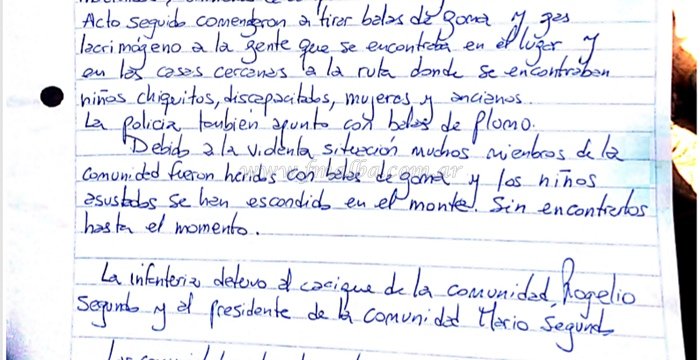 Acto seguido comenzaron a tirar balas de goma y gas
lacrimógeno a la gente que se encontraba en el lugar y
en las casas cercanas a la ruta donde se encontraban
niños chiquitos, discapacitados, mujeres y ancianos.
La policia tambien apunto con balas de plomo.
Debido a la violenta situación muchos miembros de la
comunidad fueron heridos con balas de goma y los niños
asustados se han escondido en el monte. Sin encontrarlos
hasta el momento.
La infanteria detuvo al cacique de la comunidad, Rogelio
Segundo y al presidente de la comunidad Mario Segundo